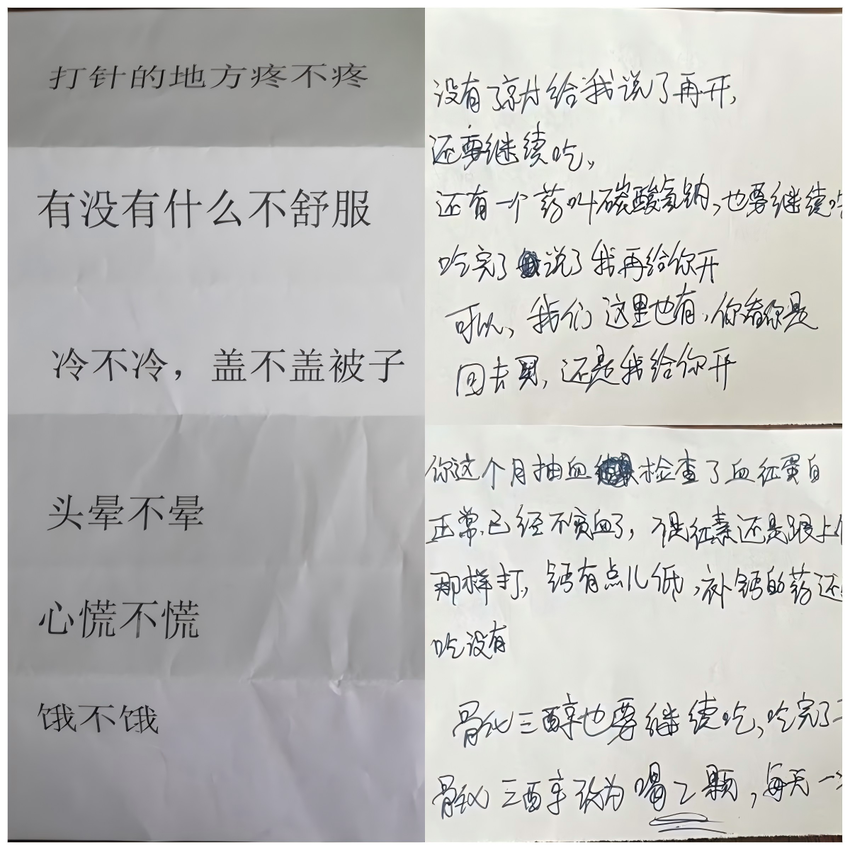 打针的地方疼不疼
有没有什么不舒服
冷不冷，盖不盖被子
头晕不晕
心慌不慌
饿不饿
没有了就给我说了再开，
还要继续吃，
还有一个药叫碳酸氢钠，也要继续吃
吃完了说了我再给你开
可以，我们这里也有，你看你是
回去买，还是我给你开
你这个月抽血检查了血红蛋白
正常，已经不贫血了，促红素还是跟上
那样打，钙有点儿低，补钙的药还
吃没有
骨化三醇也要继续吃，吃完了
骨化三醇改为喝2颗，每天一